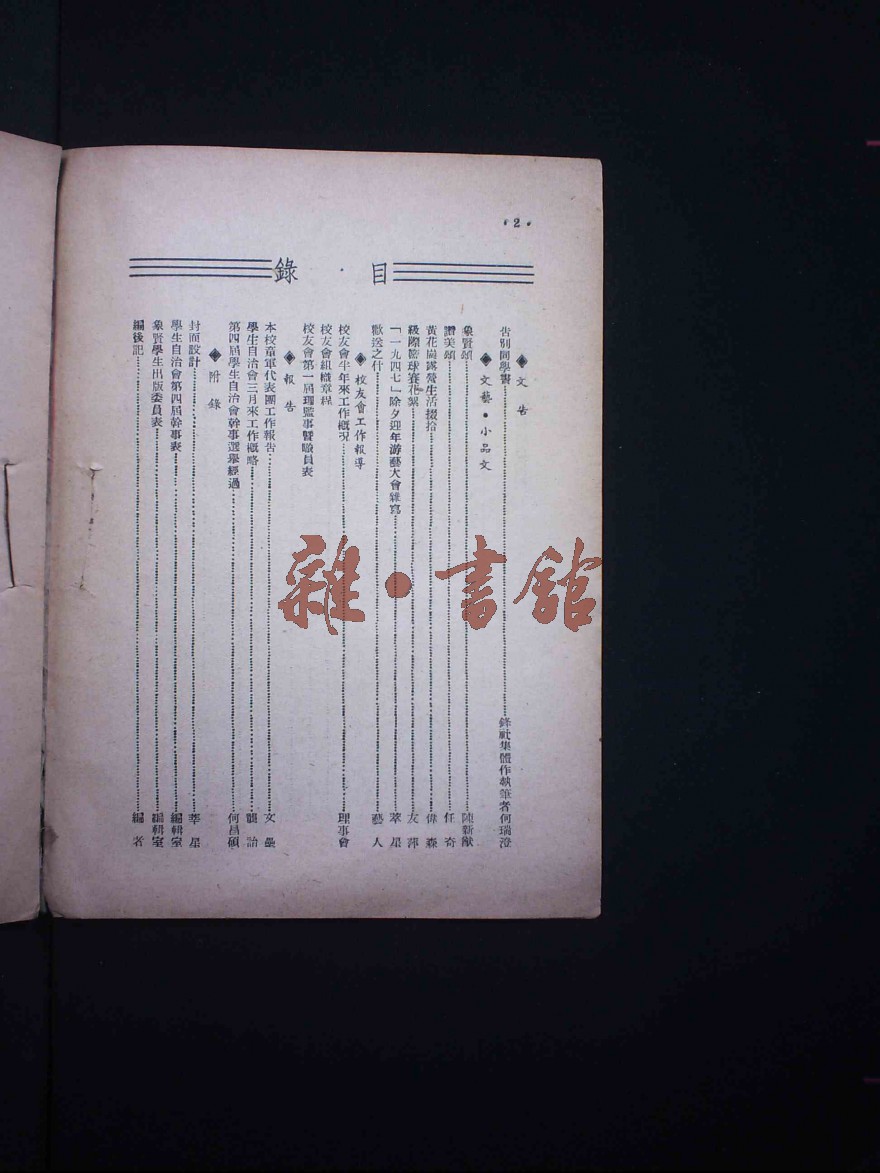 ·2·
目錄
◆文告
告別同學書 鋒社集體作執筆者何瑞澄
◆文藝·小品文
象賢頌 陳新猷
讚美頌 任奇
黃花崗露營生活掇拾 偉森
級際籃球賽花絮 友萍
「一九四七」除夕迎年游藝大會雜寫 萃星
歡送之什 藝人
◆校友會工作報導
校友會半年來工作概況 理事會
校友會組織章程
校友會第一屆理監事暨職員表
◆報告
本校童軍代表團工作報告 文壘
學生自治會三月來工作概略 龔詒
第四屆學生自治會幹事選舉經過 何昌碩
◆附錄
封面設計 莘星
學生自治會第四屆幹事表 編輯室
象賢學生出版委員表 編輯室
編後記 編者
雜·書館